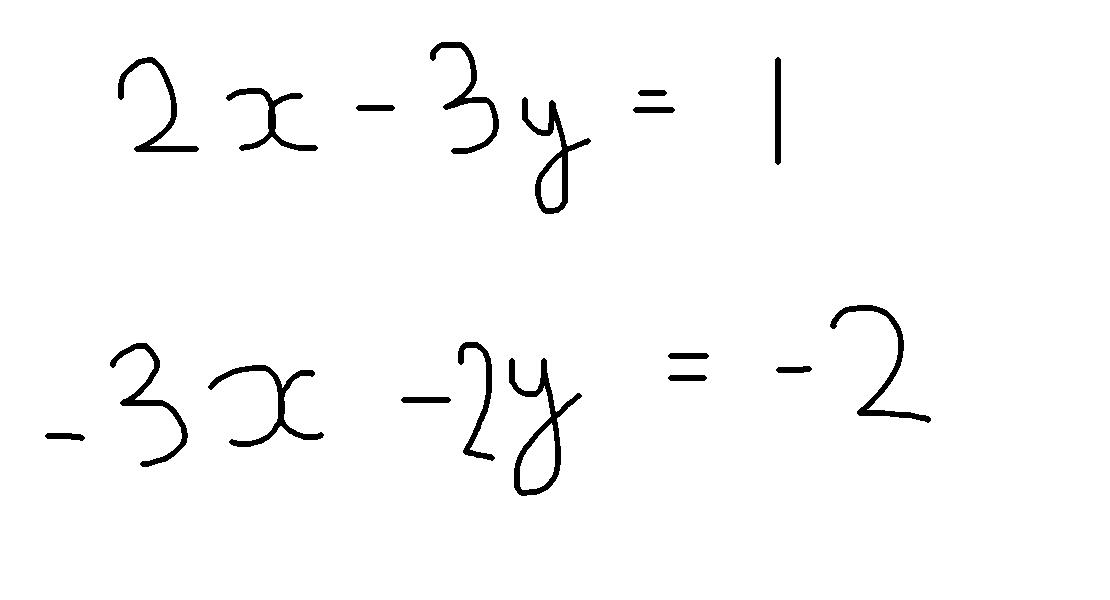 2x - 3y = 1
-3x - 2y = -2